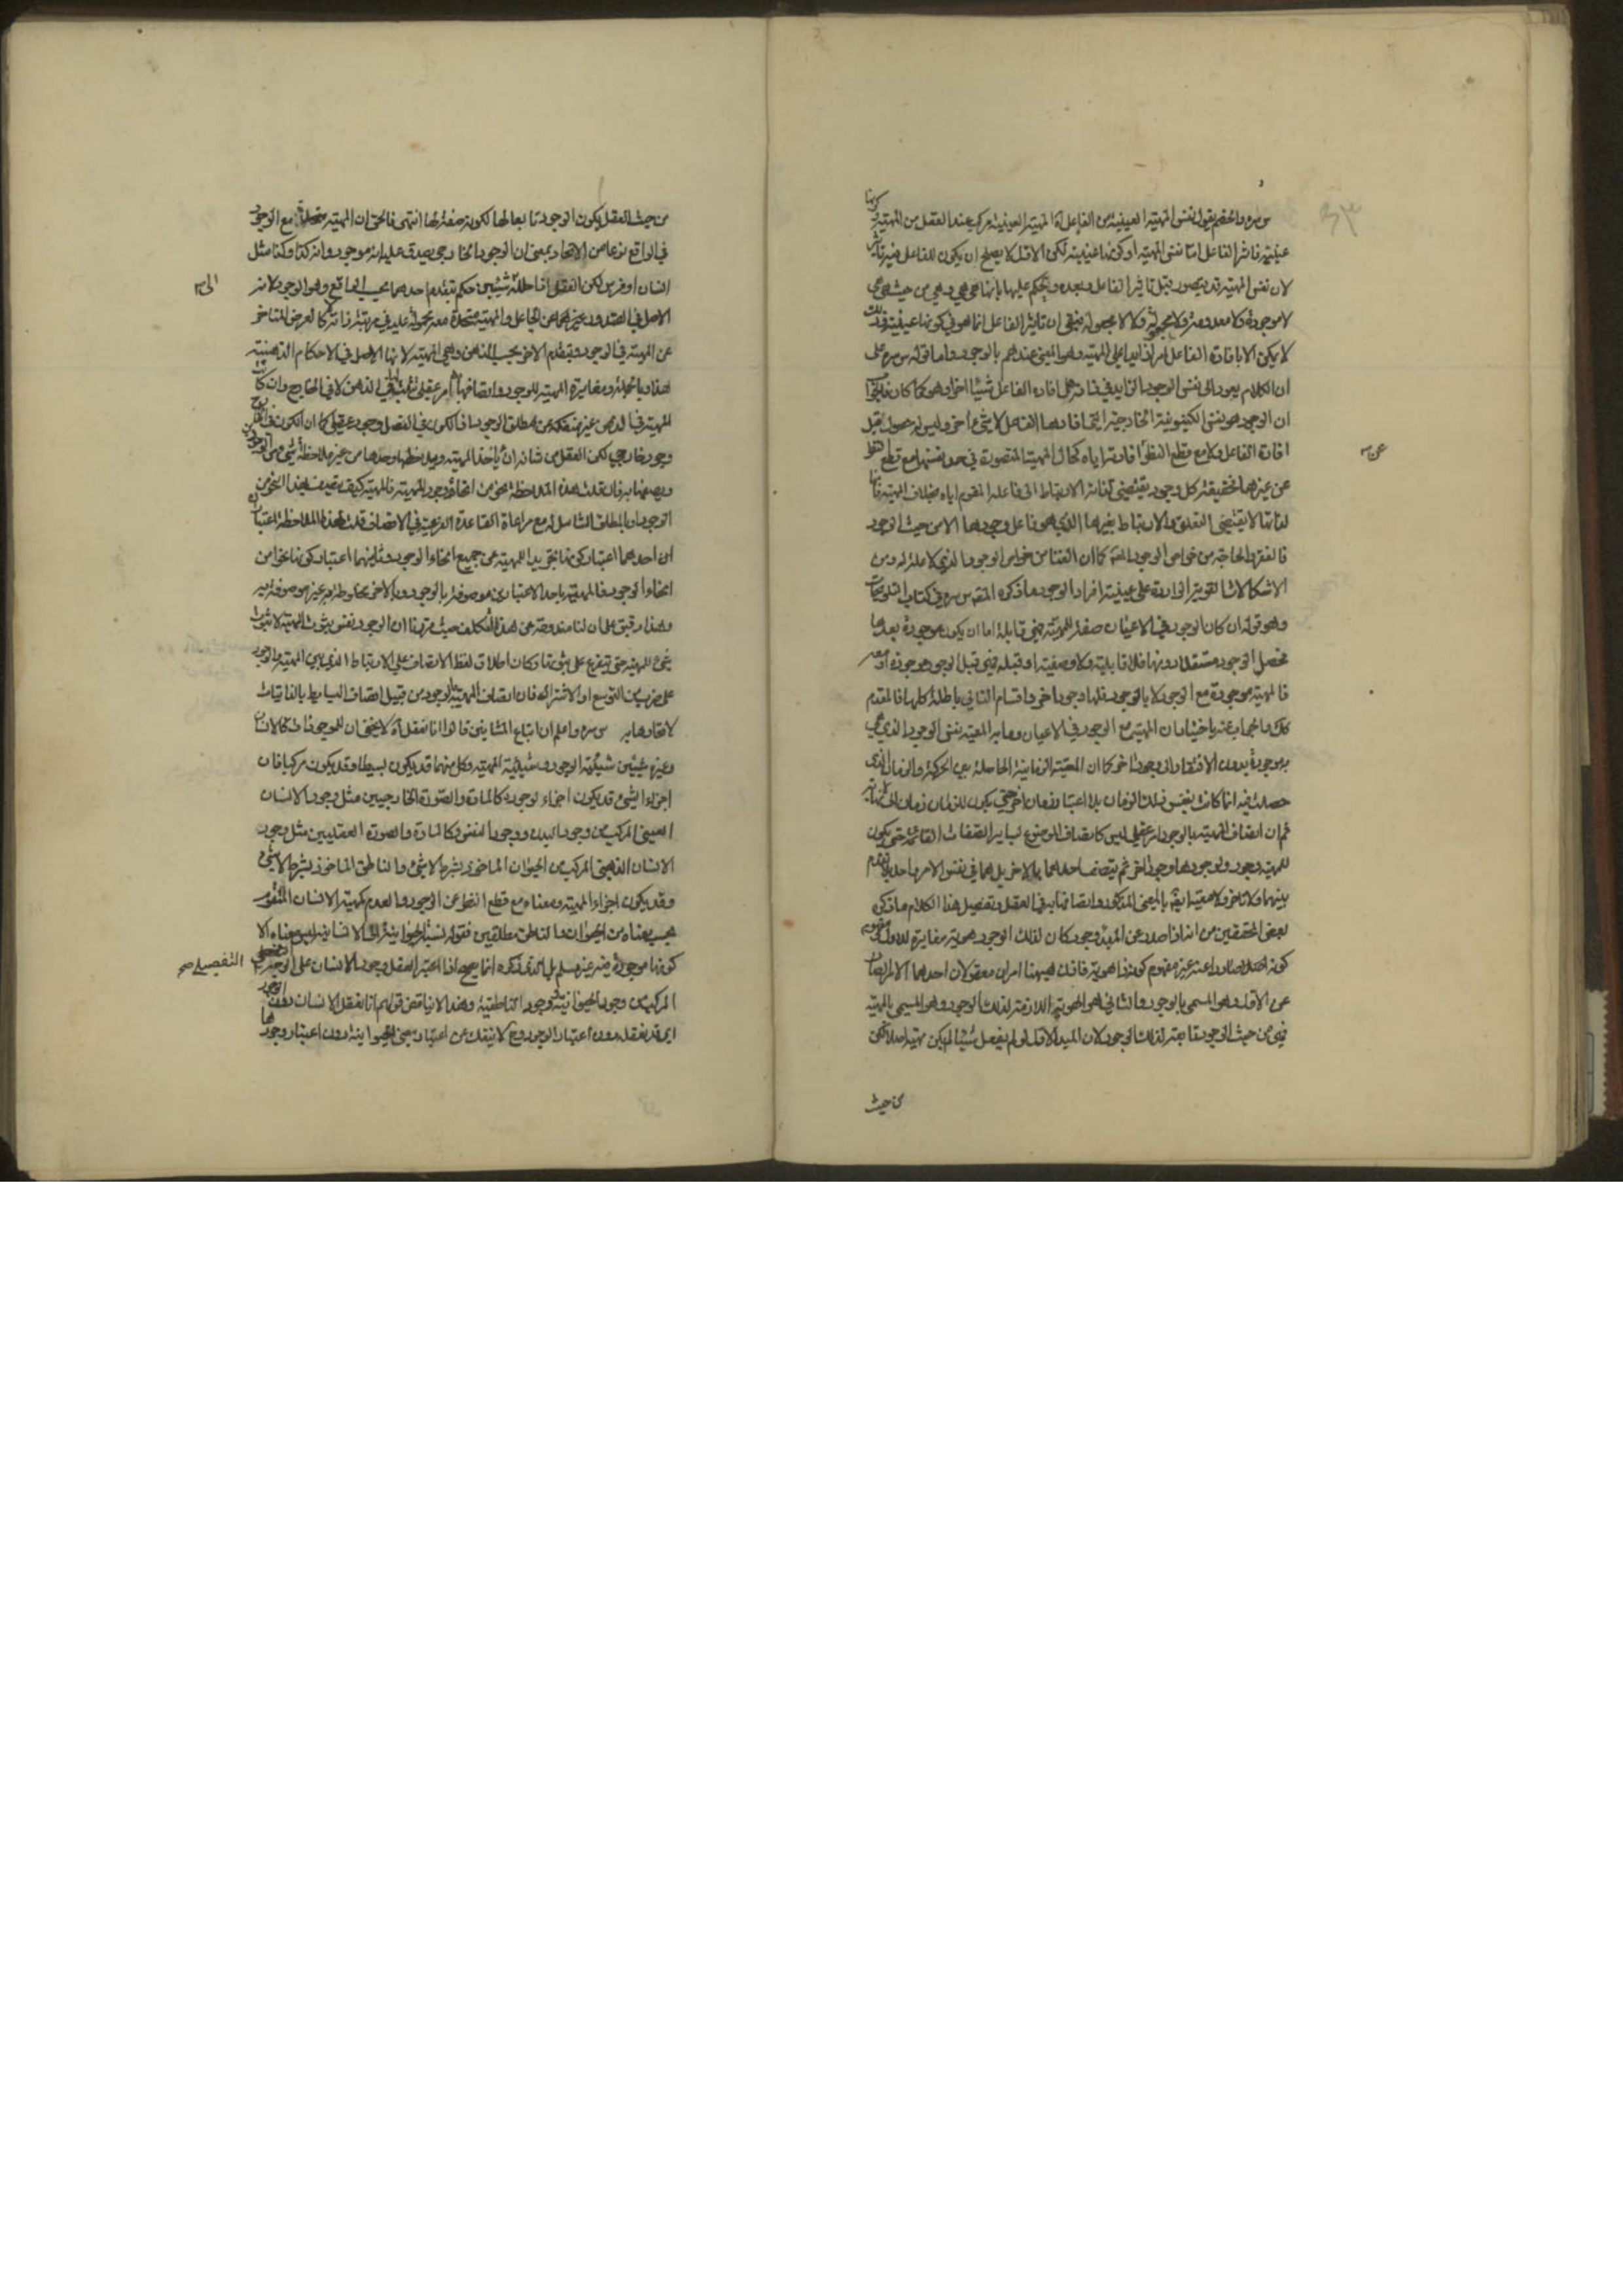 س سره والخصم يقول نفس المهية العينية من الفاعل اه المهية العينية مركبة عند العقل من المهية وكونها
عينية فاثر الفاعل اما نفس المهية او كونها عينية لكن الاول لا يصلح ان يكون للفاعل فيه تاثير
لان نفس المهية قد يتصور قبل تاثير الفاعل وبعده ويحكم عليها بانها هي هي وهي من حيث هي هي
لا موجودة ولا معدومة ولا مجعولة ولا لا مجعولة فبقى ان تاثير الفاعل انما هو في كونها عينية وذلك
لا يمكن الا بافادة الفاعل امرا زايدا على المهية وهو المعنى عندهم بالوجود واما قوله س سره على
ان الكلام يعود الى نفس الوجود الزايد في انه هل افاده الفاعل شيئا اخر او هو كما كان
ان الوجود هو نفس الكينونية الخارجية التي افادها الفاعل لا شيء اخر وليس له حصول قبل
افادة الفاعل ولا مع قطع النظر افادته اياه كحال المهية المتصورة في حد نفسها مع قطع النظر
عن
عن غيرها فحقيقة كل وجود يقتضي لذاته الارتباط الى فاعله المقوم اياه بخلاف المهية فانها
لذاتها لا يقتضي التعلق والارتباط بغيرها الذي هو فاعل وجودها الا من حيث الوجود
فالفقر والحاجة من خواص الوجود كما ان الغنا من خواص الوجود الذي لا علة له ومن
الاشكالات القوية الواردة على عينية افراد الوجود ما ذكره المص س سره في كتاب التلويحات
وهو قوله ان كان الوجود في الاعيان صفة للمهية فهي قابلة اما ان يكون موجودة بعدها
فحصل الوجود مستقلا دونها فلا قابلية ولا وصفية او قبله فهي قبل الوجود موجودة او معه
فالمهية موجودة مع الوجود لا بالوجود فلها وجود اخر واقسام التالي باطلة كلها فالمقدم
كك والجواب عنه باختيار ان المهية مع الوجود في الاعيان وما به المعية نفس الوجود الذي هي
به موجودة بدون الافتقار الى وجود اخر كما ان المعية الزمانية الحاصلة بين الحركة والزمان الذي
حصلت فيه انما كانت بنفس ذلك الزمان بلا اعتبار زمان اخر حتى يكون للزمان زمان الى
ثم ان اتصاف المهية بالوجود امر عقلي ليس كاتصاف الموضوع بساير الصفات القائمة حتى يكون
للمهية وجود ولوجودها وجود اخر ثم يتصف احدهما بالاخر بل هما في نفس الامر واحد بلا تقدم
بينهما ولا تاخر ولا معية ايضا بالمعنى المذكور واتصافها به في العقل وتفصيل هذا الكلام ما ذكره
بعض المحققين من انه اذا صدر عن المبدء وجود كان لذلك الوجود هوية مغايرة للاول ومفهوم
كونه صادرا عنه غير مفهوم كونه ذا هوية فاذن هيهنا امران معقولان احدهما الامر الصادر
عن الاول وهو المسمى بالوجود والثاني هو الهوية اللازمة لذلك الوجود وهو المسمى بالمهية
فهي من حيث الوجود تابعة لذلك الوجود لان المبدء الاول لو لم يفعل شيئا لم يكن مهية اصلا لكن
من حيث
من حيث العقل يكون الوجود تابعا لها لكونه صفة لها انتهى فالحق ان المهية متحدة مع الوجود
في الواقع نوعا من الاتحاد بمعنى ان الوجود الخارجي يصدق عليه انه موجود وانه كذا وكذا مثل
انسان او فرس لكن العقل اذا حلله شيئين حكم بتقدم احدهما بحسب الواقع وهو الوجود لانه
الى
الاصل في الصدور عن الجاعل والمهية متحدة معه محمولة عليه في مرتبة ذاته لا كالعرض المتاخر
عن المهية في الوجود وبتقدم الاخر بحسب الذهن وهي المهية لانها الاصل في الاحكام الذهنية
هذا وبالجملة ومغايرة المهية للوجود واتصافها به امر عقلي في الذهن لا في الخارج وان كانت
المهية في الذهن غير منفكة عن مطلق الوجود اذ الكون في العقل وجود عقلي كما ان الكون في الخارج
وجود خارجي لكن العقل من شانه ان ياخذ المهية ويلاحظها وحدها من غير ملاحظة شيء من الوجودين
ويصفها به فان قلت هذه الملاحظة نحو من انحاء وجود المهية فالمهية كيف يتصف بهذا النحو من
الوجود او بالمطلق الشامل له مع مراعاة القاعدة الفرعية في الاتصاف قلت لهذه الملاحظة اعتباران
احدهما اعتبار كونها تجريدا للمهية عن جميع انحاء الوجود وثانيهما اعتبار كونها نحوا من
انحاء الوجود فالمهية باحد الاعتبارين موصوفة بالوجود وبالاخر مخلوطة به غير موصوفة به
وهذا دقيق على ان لنا مندوحة عن هذا التكلف حيث قررنا ان الوجود نفس ثبوت المهية لا ثبوت
شيء للمهية حتى يتفرع على ثبوتها وكان اطلاق لفظ الاتصاف على الارتباط الذي بين المهية والوجود
على ضرب من التوسع او الاشتراك فان اتصاف المهية بالوجود من قبيل اتصاف البسايط بالذاتيات
لاتحادها به س سره واعلم ان اتباع المشائين قالوا انا نعقل اه لا يخفى ان للموجودات كالانسان
وغيره شيئين شيئية الوجود وشيئية المهية وكل منهما قد يكون بسيطا وقد يكون مركبا فان
اجزاء الشيء قد يكون اجزاء لوجوده كالمادة والصورة الخارجيين مثل وجود الانسان
العيني المركب من وجود البدن ووجود النفس وكالمادة والصورة العقليين مثل وجود
الانسان الذهني المركب من الحيوان الماخوذ بشرط لا شيء والناطق الماخوذ بشرط لا شيء
وقد يكون اجزاء المهية ومعناه مع قطع النظر عن الوجود والعدم كمهية الانسان المتقوم
بحسب معناه من الحيوان والناطق مطلقين فقوله نسبة الحيوانية الى الانسانية ليس معناه الا
كونها موجودة فيه غير مسلم بل الذي ذكره انما يصح اذا اعتبر العقل وجود الانسان على الوجه
التفصيلي صح
المركب من وجود الحيوانية ووجود الناطقية وهذا لا يناقض قولهم انا نعقل الانسان دون الوجود
اي قد نعقله بدون اعتبار الوجود وح لا ينفك عن اعتبار معنى الحيوانية دون اعتبار وجودها